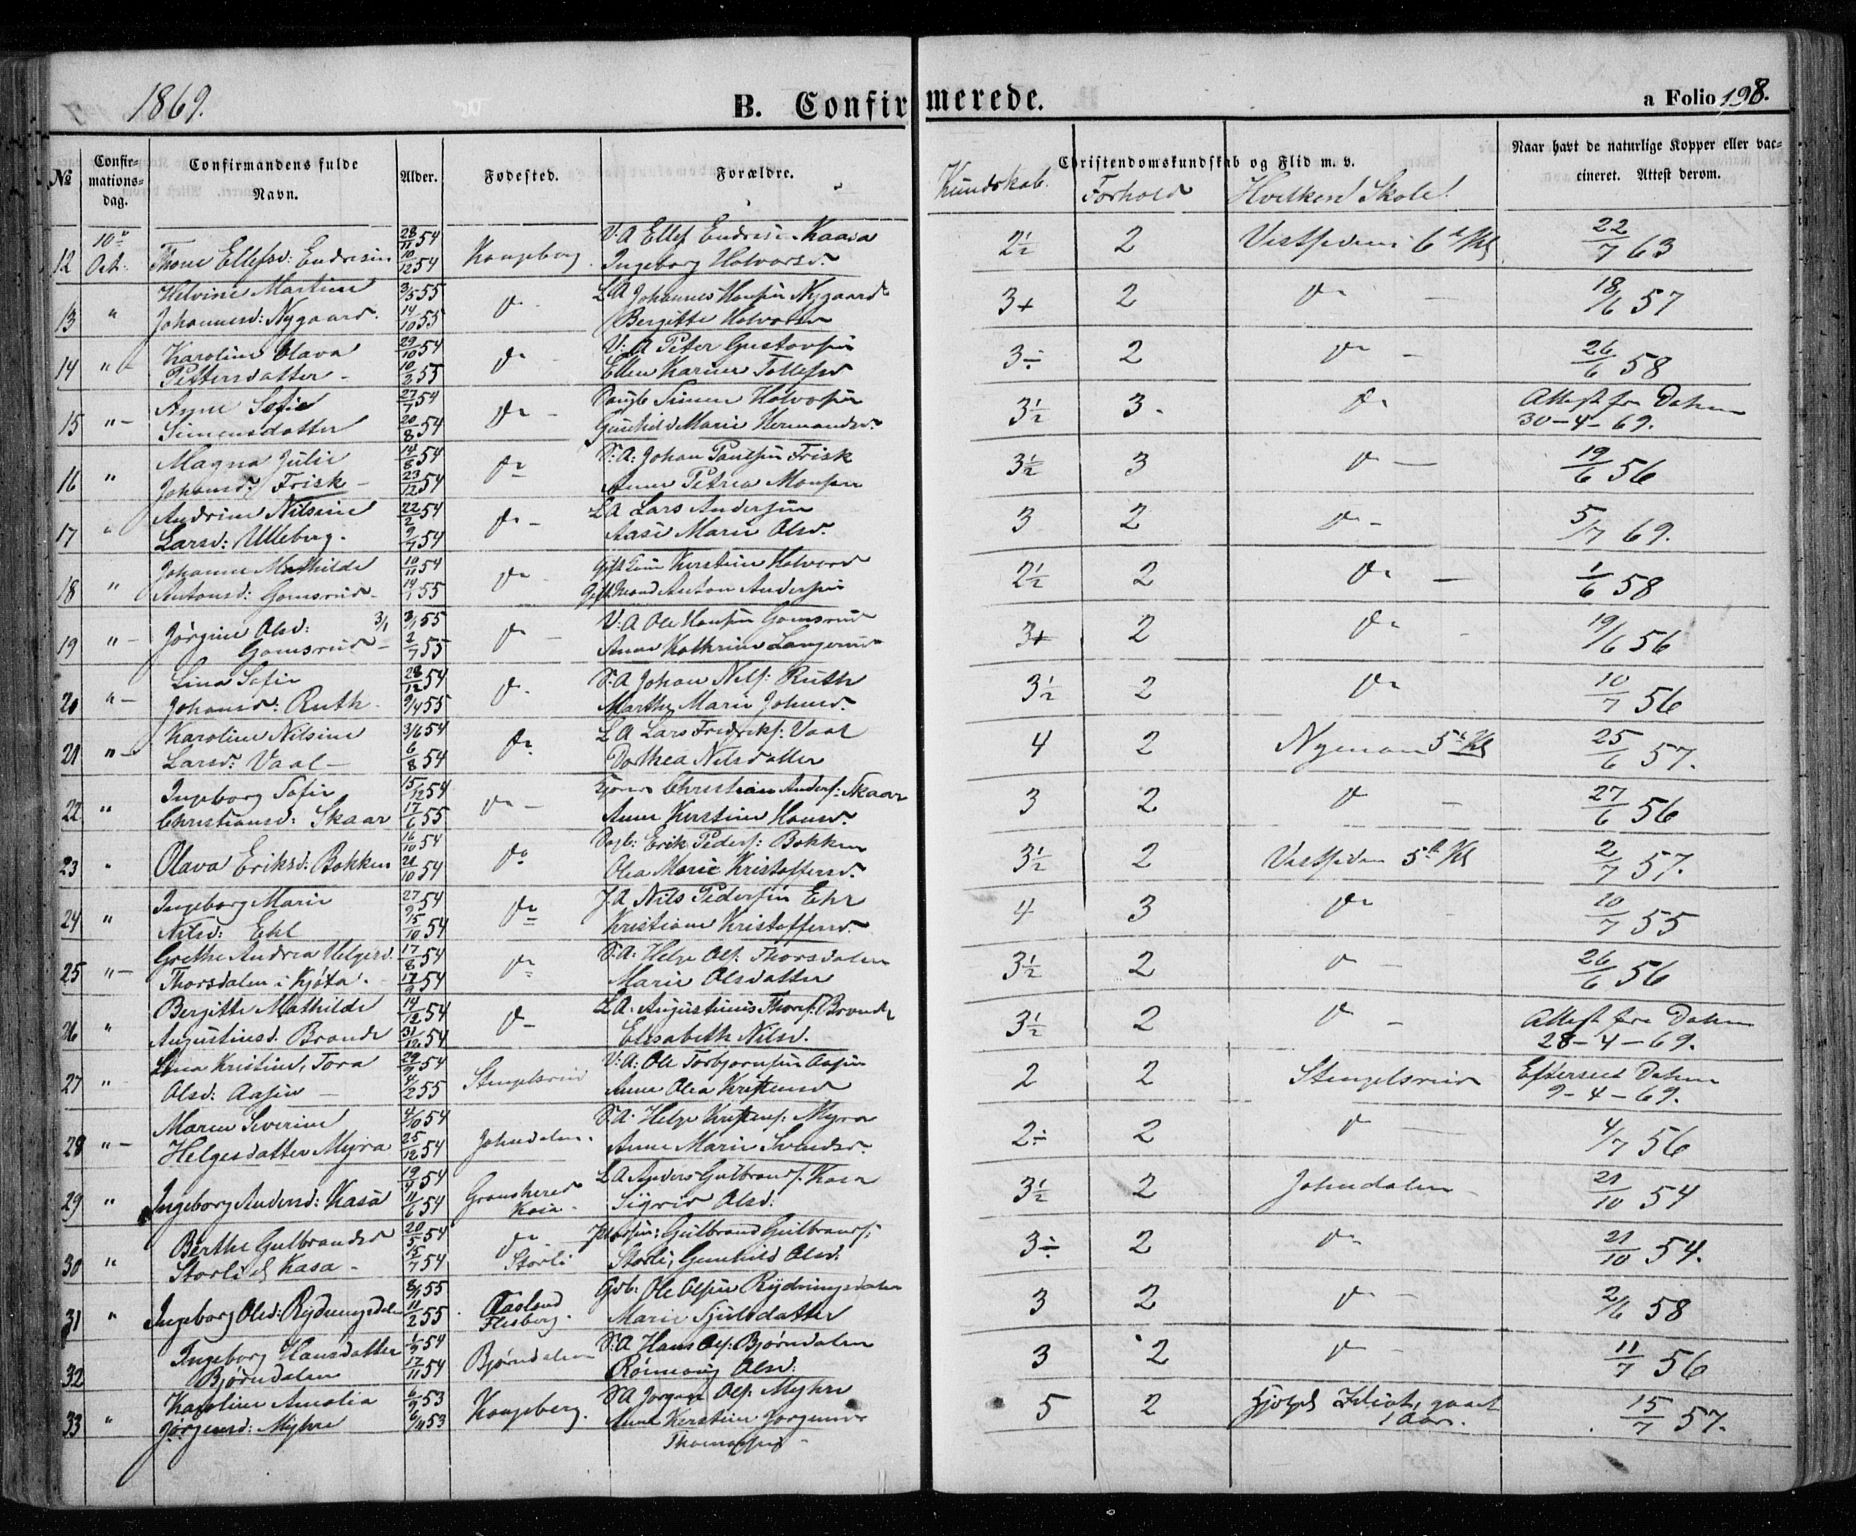 1869.
B. Confirmerede.
a Folio 198.
No
Confirmationsdag.
Confirmandens fulde Navn.
Alder.
Fødested.
Forældre.
Christendomskundskab og Flid m. v.
Kundskab. Forhold Hvilken Skole!
Naar havt de naturlige Kopper eller vaccineret. Attest derom.
12 10de Octr. Thone Ellefsd: Endresen 28/11 54 10/12 54 Kongsberg V: A Ellef Endresen Kaasa Ingeborg Halvorsd. 2½ 2 Vestsidens 6te Kl 22/7 63
13 " Helvine Martine Johannesd: Nygaard. 3/5 55 14/10 55 do - L A Johannes Hansen Nygaard Bergitte Halvorsen 3+ 2 do - 18/6 57
14 " - Karoline Olava Pettersdatter - 29/10 54 10/2 55 do - V: A Peter Gustavsen Ellen Karine Tollefsd 3÷ 2 do - 26/6 58
15 " - Anne Sofie Simensdatter 27/7 54 20/8 54 do - Simen Halvorsen Gunhild Marie Hermandsd. 3½ 3. do Attest fra Dahm 30-4-69.
16 " Magna Julie Johansd: Frisk - 14/8 54 23/12 54 do S: A: Johan Paulsen Frisk Anne Petrea Monsen 3½ 3 do - 19/6 56
17 " Andrine Nilsine Larsd: Ulleberg. 22/2 54 9/7 54 do - L A Lars Andersen Aase Marie Olsd. 3 2 do - 5/7 69.
18 " Johanne Mathilde Antonsd: Gomsrud 10/11 54 14/1 55 do - Kirstine Halvorsd Gift Mand Anton Andersen 2½ 2 do - 1/6 58
19 " - Jørgine Olsd: 3/1 Gomsrud - 3/1 55 2/7 55 do - V: A Ole Hansen Gomsrud Anne Kathrine Langerud 3+ 2 do - 19/6 56
20 " - Lina Sofie Johansd: Ruth. 28/12 54 9/4 55 do. S: A Johan Nilss: Ruth Marthe Marie Johnsd. 3½ 2 do 10/7 56
21 " - Karoline Nilsine Larsd: Vaal - 3/6 54 6/8 54 do L A Lars Fredriks: Vaal Dorthea Nilsdatter 4 2 Nymoen 5te Kl 25/6 57.
22 " Ingeborg Sofie Christiansd: Skaar 15/12 54 17/6 55 do - Christian Anders: Skaar Anne Kirstine Hansd. 3 2 do - 27/6 56
23 " Olava Eriksd: Bakken 16/10 54 21/10 54 do Erik Peders: Bakken Olea Marie Kristoffersd. 3½ 2 Vestsiden 5te Kl 2/7 57.
24 " Ingeborg Marie Nilsd: Ekl 27/9 54 15/10 54 do J A Nils Pedersen Ekl Kristiane Kristoffersd. 4 3 do - 10/7 55
25 " - Grethe Andrea Helgesd. Thorsdalen i Kjøta. 17/8 54 17/9 54 do S: A: Helge Ols: Thorsdalen Marie Olsdatter 3½ 2 do - 26/6 56
26 " Bergitte Mathilde Augustinsd. Brande 14/12 54 31/12 54 do - L A: Augustinus Thors: Brande Elisabeth Nilsd. 3½ 2 do - Attest fra Dahm 28-4-69.
27 " Lina Kristine, Tora Olsd: Aasen - 29/9 54 4/2 55 Stengelsrud V: A: Ole Torbjørnsen Aasen Anne Olea Kristensd 2 2 Stengelsrud Efterseet Dahm 9-4-69.
28 " - Maren Severine Helgesdatter Myra 4/10 54 25/12 54 Jondalen. S: A: Helge Kristens: Myra Anne Marie Svendsd. 2÷ 2 do - 4/7 56
29 " Ingeborg Andersd: Kasa 19/4 54 11/6 54 Gransherred Kasa - L A Anders Gulbrands: Kasa Sigrid Olsd: 3½ 2 Jondalen - 21/10 54
30 " Berthe Gulbrandsd Storli Kasa - 20/5 54 15/7 54 do - Storli Gulbrand Gulbrands: Storli, Gunhild Olsd. 3÷ 2 do 21/10 54.
31 " Ingeborg Olsd: Rydningsdalen 8/1 55 11/2 55 Aasland Flesberg. Gdb: Ole Olsen Rydningsdalen Marie Tjulsdatter 3 2 do - 2/6 58
32 Ingeborg Hansdatter Bjørndalen 54 17/11 54 Bjørndalen S: A Hans Ols: Bjørndalen Rønnaug Olsd: 3 2 do - 11/7 56
33 " Karoline Amalia Jørgensd: Myhre 6/9 53 6/11 53 Kongsberg. S A Jørgen Ols: Myhre Anne Kirstine Jørgensd Thomassen - 5 2 Idiot, gaaet 1 Aar. 15/7 57.